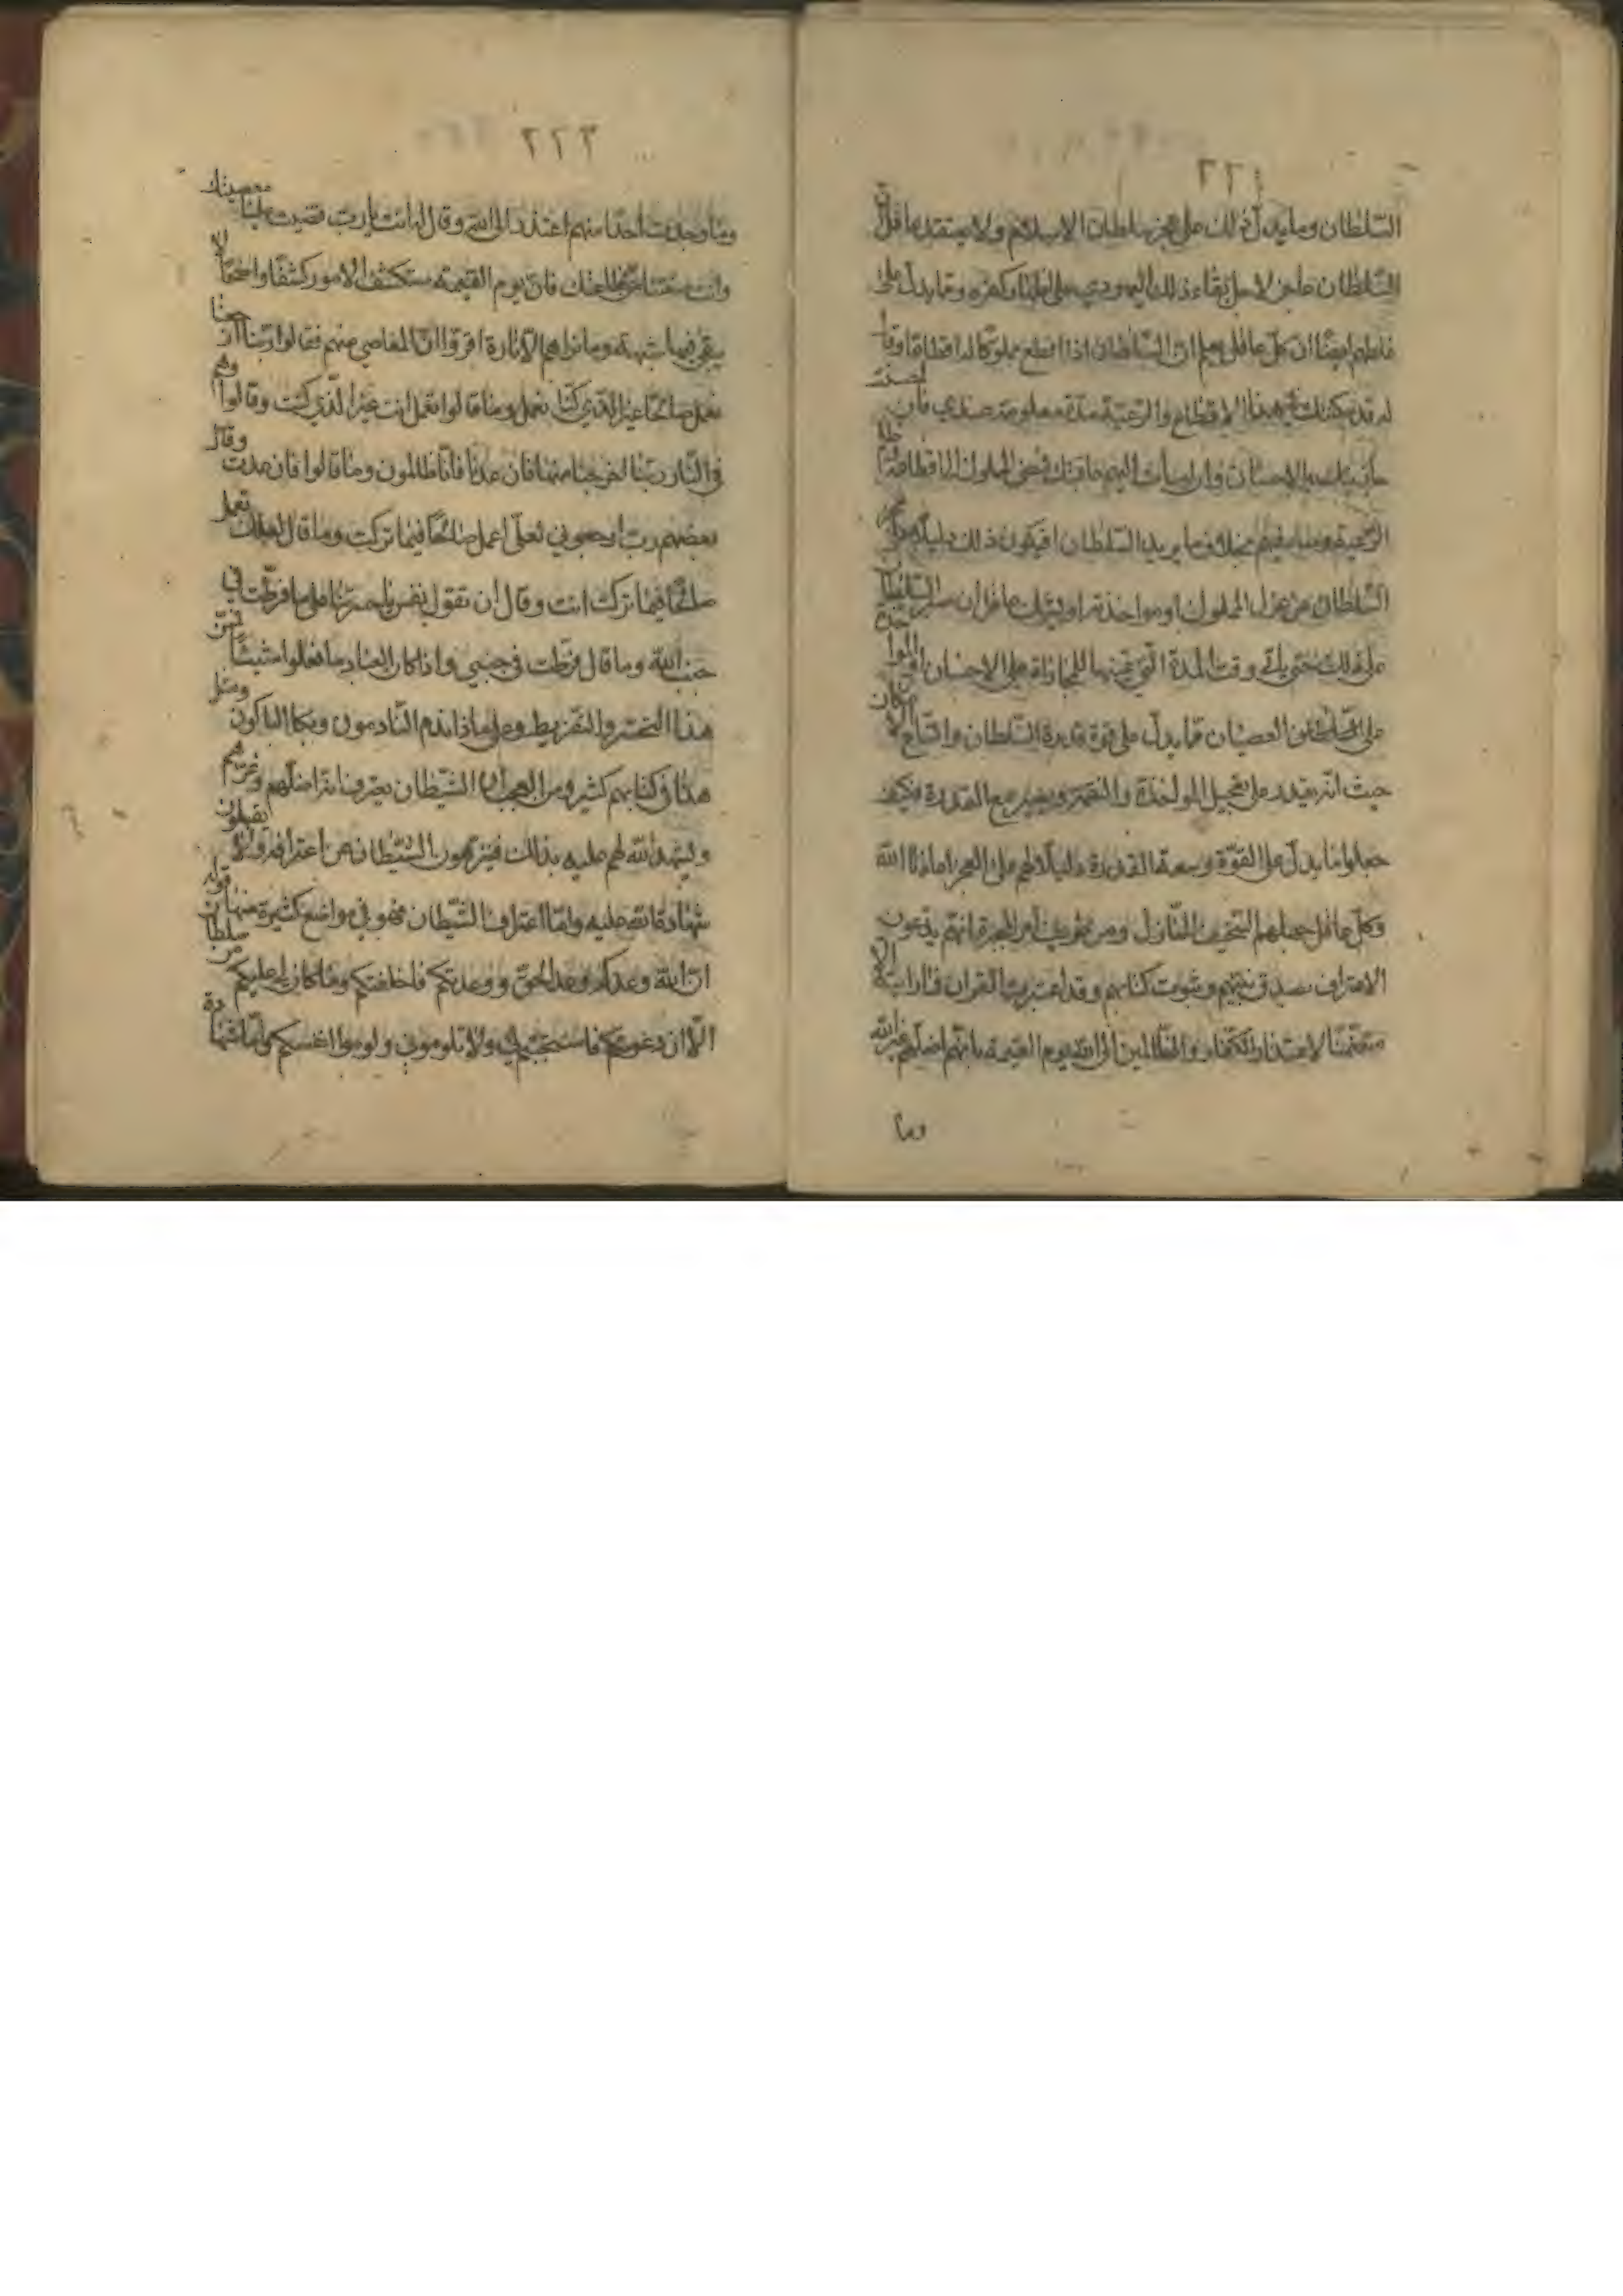 ٢٢١
السلطان وما يدل ذلك على عجز سلطان الاسلام ولا يعتقد عاقل ان
السلطان عاجز لاجل بقاء ذلك اليهودي على وكفره ومما يدل على
ايضا ان كل عاقل يعلم ان السلطان اذا اقطع مملوكا له اقطاعا وقال
له قد مكنتك في هذا الاقطاع والرعية مدة معلومة عندي فان احسنت
بالاحسان وان اسات اليهم عاقبتك فمضى المملوك الى اقطاعه
الرعية فيهم بخلاف ما يريد السلطان افيكون ذلك دليلا على عجز
السلطان عن عزل المملوك او مواخذته اوليترك عاقل ان السلطان
على ذلك حتى ياتي وقت المدة التي عينها للمجازاة على الاحسان
على العصيان مما يدل على قوة قدرة السلطان واتساع
حيث انه يقدر على تعجيل المواخذة والنقمة ويصبر مع القدرة فكيف
جعلوا ما يدل على القوة وسعة القدرة دليلا لهم على العجز اماذنا الله
وكل عاقل جعلهم ومن طريف امر المجبرة انهم يدعون
الاعتراف بصدق نبيهم وثبوت كتابهم وقد اعتبرت القران فما رايت
متضمنا لاعتذار الكفار والظالمين الى الله يوم القيمة بانهم اضلهم غير الله
وما
٢٢٢
وما وجدت احدا منهم اعتذر الى الله وقال له انت يارب قضيت علينا معصيتك
وانت منعتنا عن طاعتك فان يوم القيمة ستكشف الامور كشفا واضحا لا
يبقى فيها شبهة وما نراهم الا تارة اقروا ان المعاصي منهم فقالوا ربنا ارجعنا
نعمل صالحا غير الذي كنا نعمل وما قالوا تعمل انت غير الذي كنت وقالوا وهم
في النار ربنا اخرجنا منها فان عدنا فانا ظالمون وما قالوا فان عدت وقال
بعضهم رب ارجعوني لعلي اعمل صالحا فيما تركت وما قال لعلك تعمل
صالحا فيما تركت انت وقال ان تقول نفس يا حسرتا على ما فرطت في
جنب الله وما قال فرطت في جنبي واذا كان العباد ما فعلوا شيئا فمن
هذا التحسر والتفريط وعلى ماذا ندم النادمون وبكا الباكون ومثل
هذا في كتابهم كثير ومن العجب ان الشيطان يعترف انه اضلهم وغرهم
ويشهد الله لهم عليه بذلك فينزهون الشيطان عن اعترافه ولا يقبلون
شهادة الله عليه واما اعتراف الشيطان فهو في مواضع كثيرة منها قوله
ان الله وعدكم وعد الحق ووعدتكم فاخلفتكم وما كان لي عليكم من سلطان
الا ان دعوتكم فاستجبتم لي ولا تلوموني ولوموا انفسكم واما